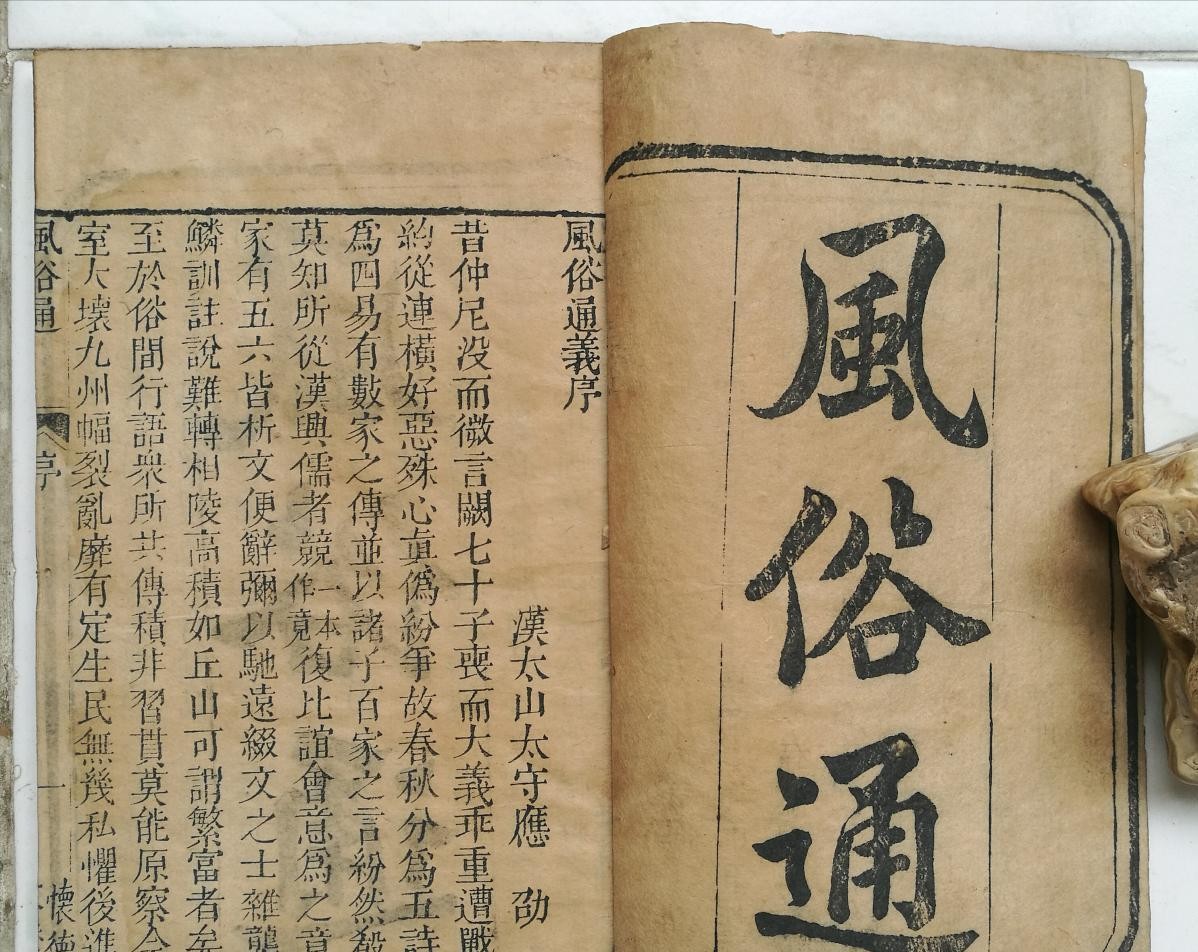 風俗通
風俗通義序
漢太山太守應 劭
昔仲尼没而微言闕七十子喪而大義乖重遭戰
約從連橫好惡殊心眞僞紛爭故春秋分爲五詩
爲四易有數家之傳並以諸子百家之言紛然殽
莫知所從漢興儒者競一本作竟復比誼會意爲之章
家有五六皆析文便辭彌以馳遠綴文之士雜龍
鱗訓註說難轉相陵高積如丘山可謂繁富者矣
至於俗間行語衆所共傳積非習貫莫能原察今
室大壞九州幅裂亂靡有定生民無幾私懼後進
風俗通 序 一 懷德